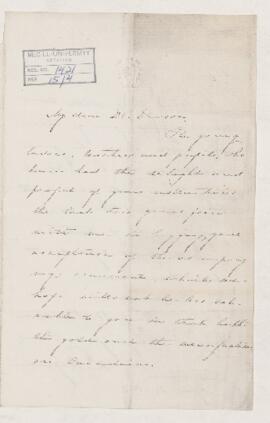 McGILL UNIVERSITY
ARCHIVES
ACC. NO. 1421
REF. 15/4
My dear Dr. Dawson
The young
ladies, teachers and pupils, who
have had the delight and
profit of your
the last two years join
with me in
acceptance of the accompany-
ing ,
will not be less val-
uable to you in that both
the gold and the
are Canadian.